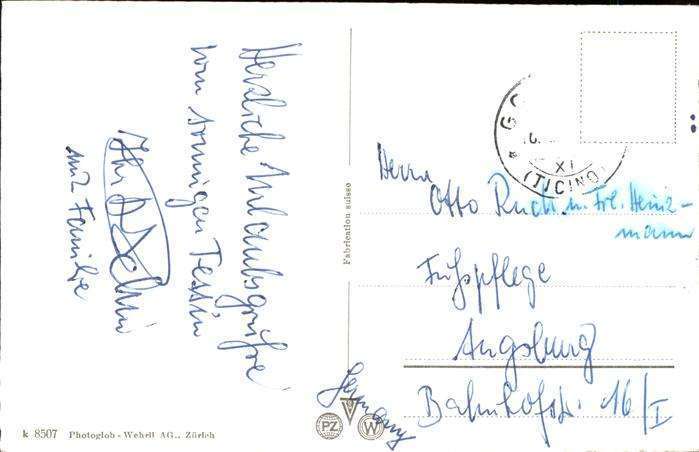 Herzliche Urlaubsgrüße
vom sonnigen Tessin
Ihr
mit Familie
Fabrication suisse
XI
(TICINO)
Herrn
Otto Ruch u. Frl. Heinz-
mann
Fußpflege
Augsburg
Bahnhofstr. 16/I
Germany
PZ
W
k 8507 Photoglob-Wehrli AG., Zürich